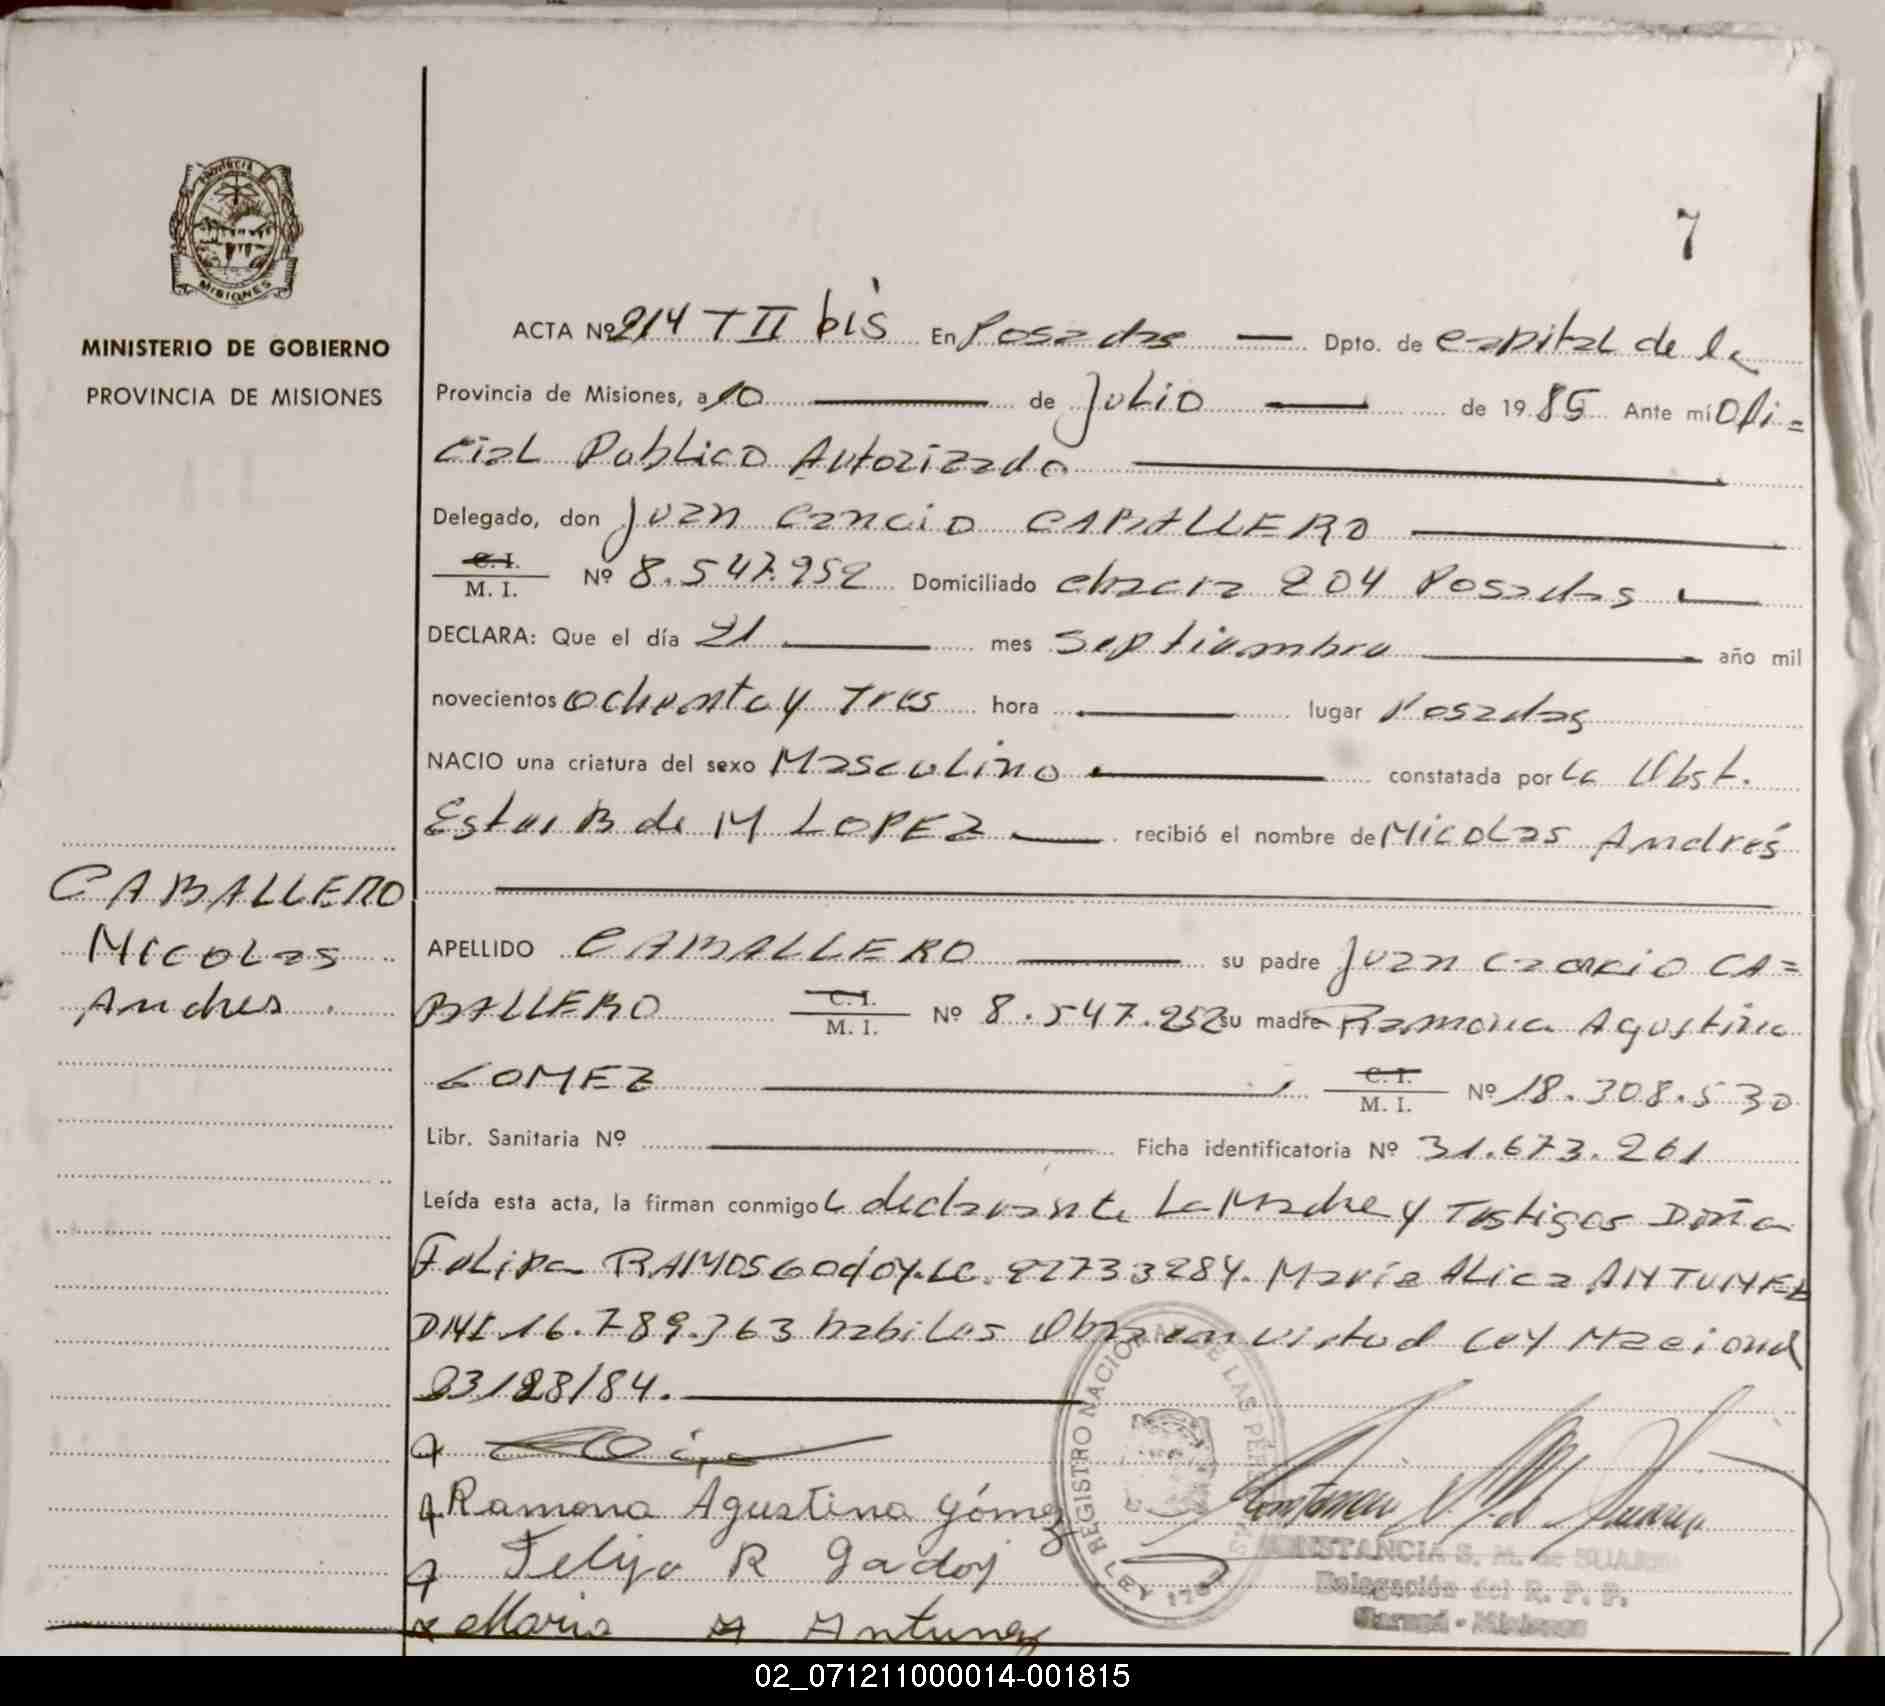 7
Provincia de
MISIONES
MINISTERIO DE GOBIERNO
PROVINCIA DE MISIONES
ACTA Nº 214 T II bis En Posadas — Dpto. de capital de la
Provincia de Misiones, a 10 — de Julio — de 1985 Ante mí Ofi=
cial Publico Autorizado —
Delegado, don Juan Cancio CABALLERO —
C. I. / M. I. Nº 8.547.252 Domiciliado chacra 204 Posadas —
DECLARA: Que el día 21 — mes septiembre — año mil
novecientos ochenta y Tres hora — lugar Posadas
NACIO una criatura del sexo Masculino — constatada por la Obst.
Ester B de M LOPEZ — recibió el nombre de Nicolas Andrés
CABALLERO
Nicolas
Andres.
APELLIDO CABALLERO — su padre Juan Cancio CA=
BALLERO C. I. / M. I. Nº 8.547.252 su madre Ramona Agustina
GOMEZ — C. I. / M. I. Nº 18.308.530
Libr. Sanitaria Nº — Ficha identificatoria Nº 31.673.261
Leída esta acta, la firman conmigo l declarante La Madre y Testigos Doña
Felipa RAMOS Godoy. LC. 92733284. Maria Alica ANTUNEZ
DNI 16.789.363 habiles Obra en virtud Ley Nacional
23128/84. —
Ramona Agustina Gómez
Felipa R Gadoy
Maria A Antunez
REGISTRO NACIONAL DE LAS PERS
CONSTANCIA S. M. de SUAREZ
Delegación del R. P. P.
Garupá - Misiones
02_071211000014-001815